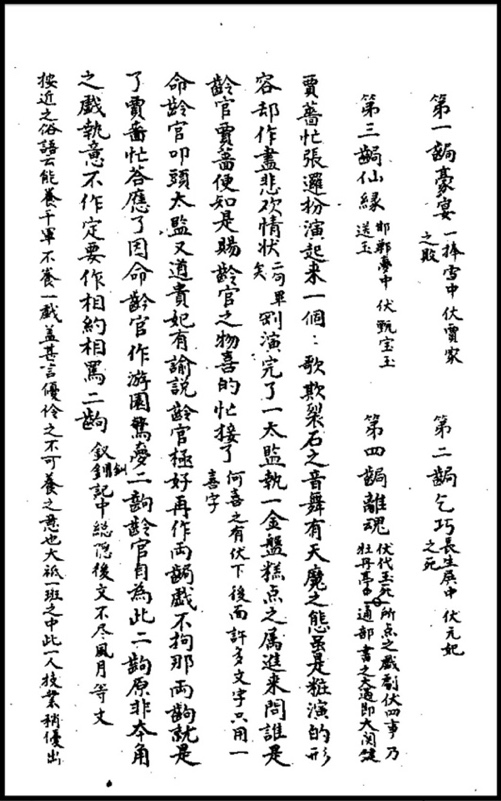 第一齣豪宴 一捧雪中 伏賈家之敗 第二齣乞巧 長生殿中 伏元妃之死
第三齣仙緣 邯鄲夢中 伏甄宝玉送玉 第四齣離魂 牡丹亭中 伏代玉死 所点之戲劇伏四事 乃通部書之大過節大関鍵
賈薔忙張邏扮演起来一個：歌欺裂石之音舞有天魔之態虽是粧演的形
容却作盡悲欢情状 二句畢矣 剛演完了一太监執一金盤糕点之属進来問誰是
齡官賈薔便知是賜齡官之物喜的忙接了 何喜之有伏下後面許多文字只用一喜字
命齡官叩頭太监又道貴妃有諭說齡官極好再作兩齣戲不拘那兩齣就是
了賈薔忙答應了因命齡官作游園驚夢二齣齡官自為此二齣原非本角
之戲執意不作定要作相約相罵二齣 釵釧記中総隐後文不尽風月等文
按近之俗語云能養千軍不養一戲盖甚言優伶之不可養之意也大抵一班之中此一人技業稍優出